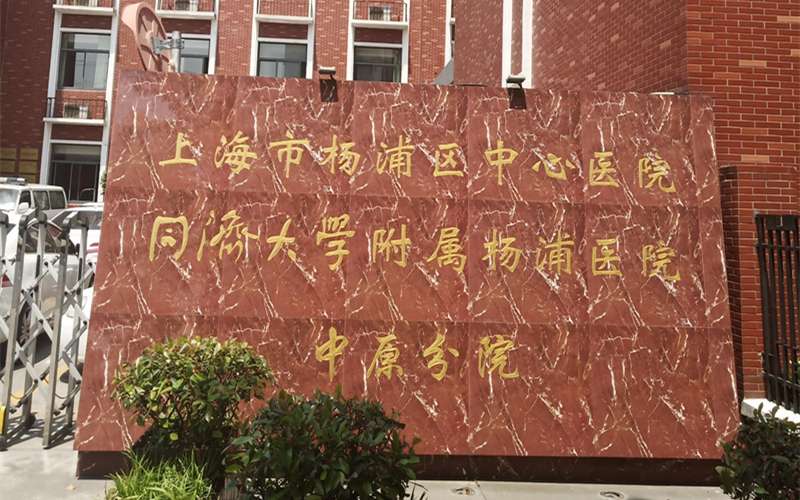 上海市杨浦区中心医院
同济大学附属杨浦医院
中原分院